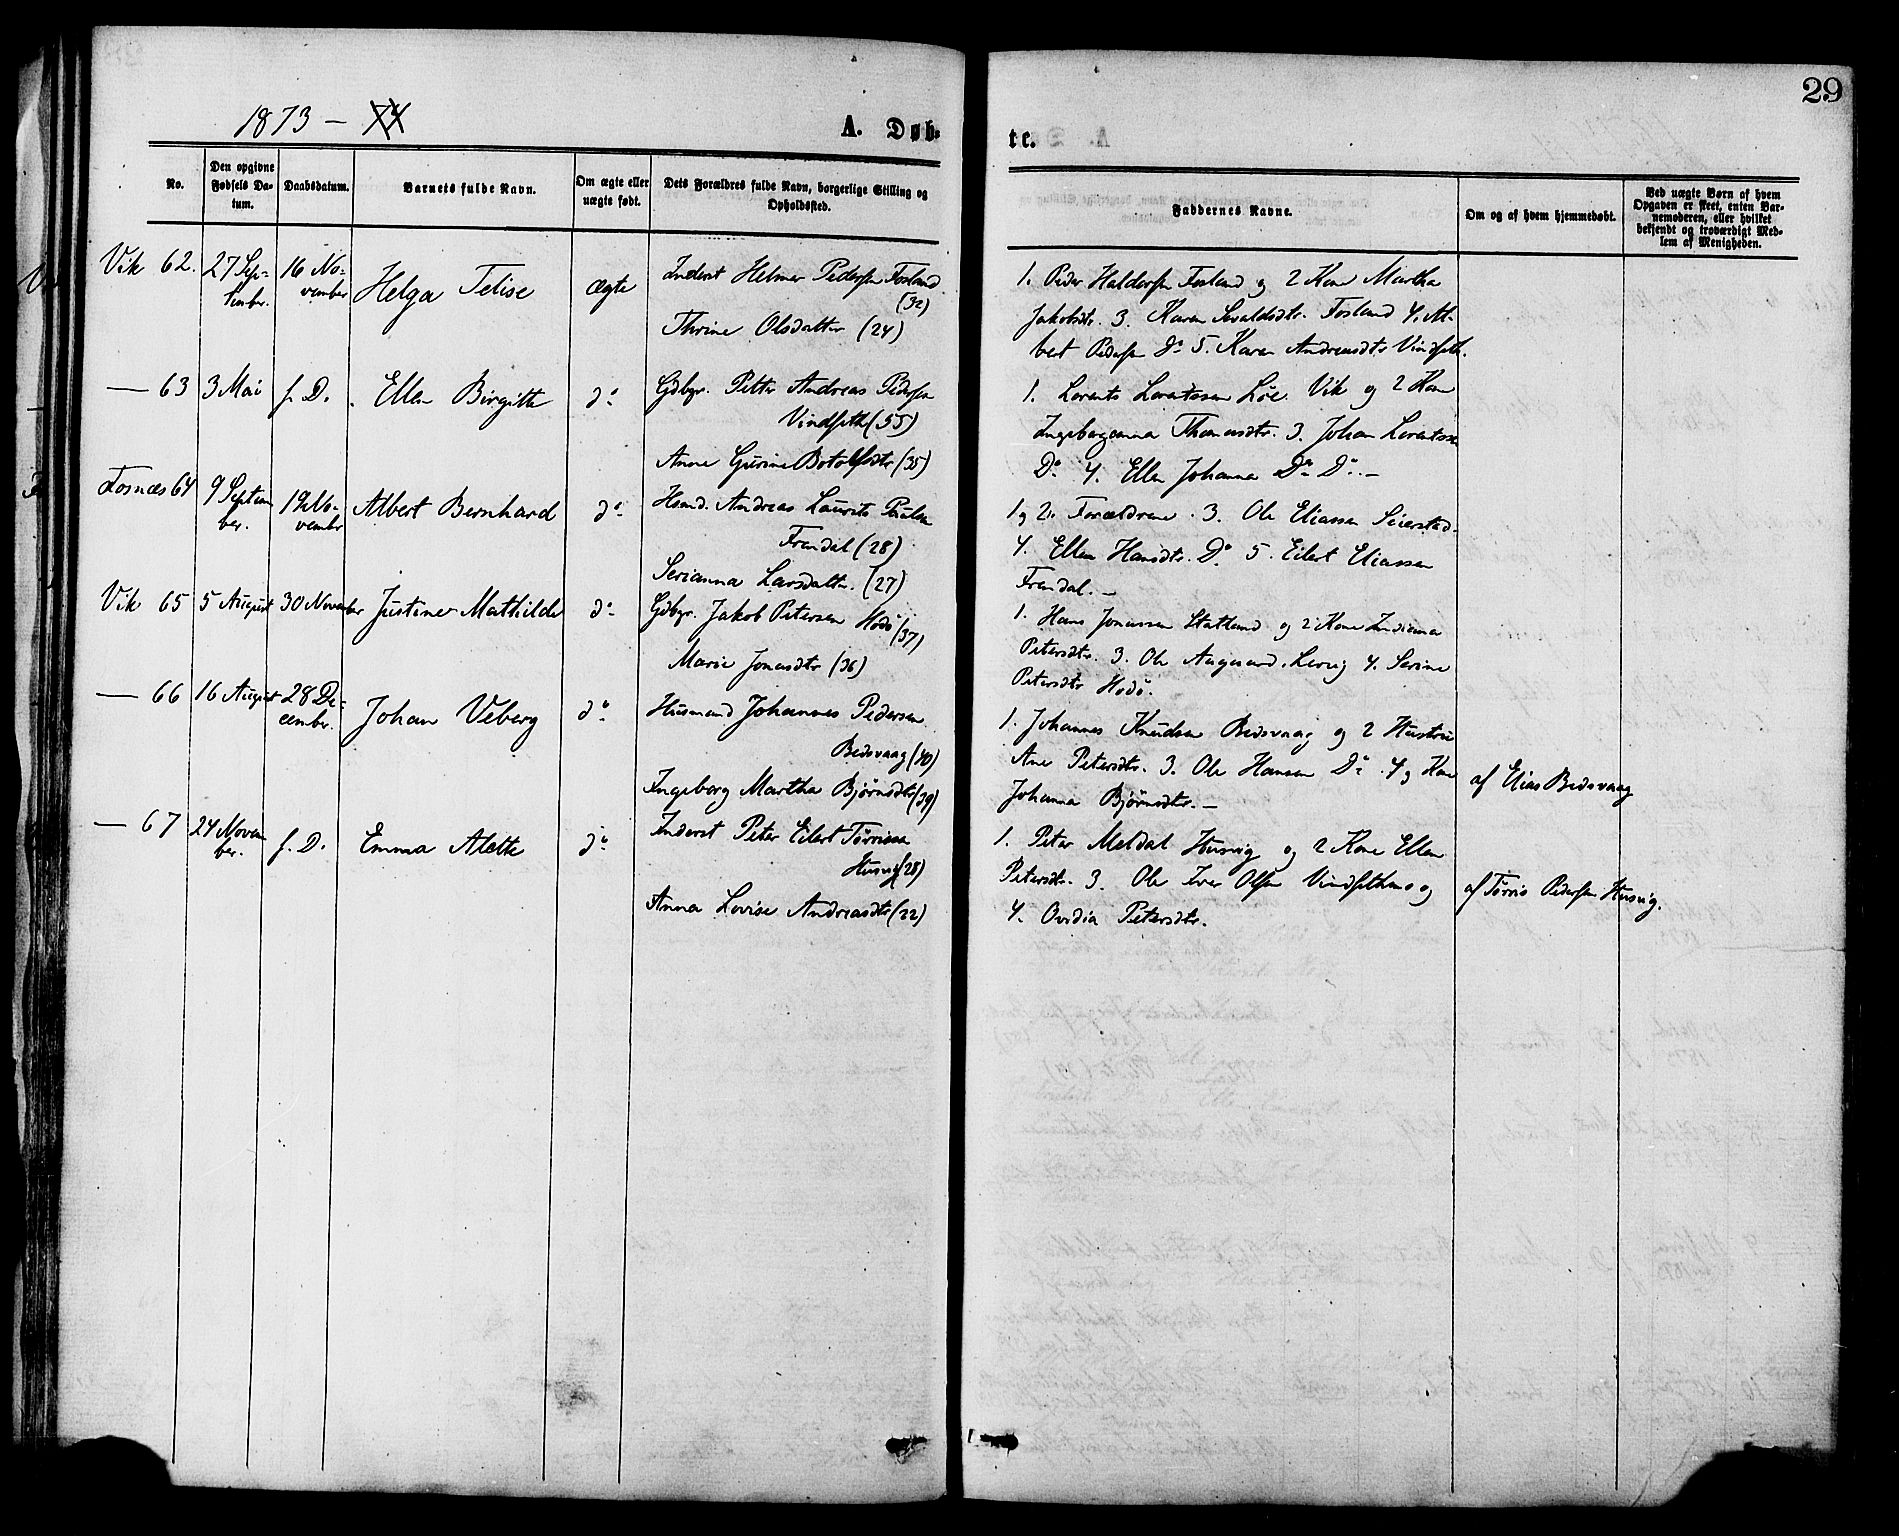 29
1873 - 74
A. Døb-
te.
No.
Den opgivne Fødsels Da-
tum.
Daabsdatum.
Barnets fulde Navn.
Om ægte eller
uægte født.
Dets Forældres fulde Navn, borgerlige Stilling og
Opholdssted.
Faddernes Navne.
Om og af hvem hjemmedøbt.
Ved uægte Børn af hvem
Opgaven er skeet, enten Bar-
nemoderen, eller hvilket
bekjendt og troværdigt Med-
lem af Menigheden.
Vik 62. 27 Sep- 16 No- Helga Telise ægte Inderst Helmer Pedersen Fosland
tember. vember (32)
Thrine Olsdatter (24)
1. Peder Haldorsen Fosland og 2 Kone Martha
Jakobsdtr. 3. Karen Sevaldsdtr. Fosland 4. Al-
bert Pedersen Do 5. Karen Andreasdtr Vindseth.
— 63 3 Mai s. D. Ellen Birgitte do Gdbgr. Petter Andreas Pedersen
Vindseth (55)
Anne Gurine Botolfsdtr (35)
1. Lorents Lorentssen Løe. Vik og 2 Kone
Ingeborganna Thomasdtr. 3. Johan Lorentssen
Do 4. Ellen Johanna Do Do. —
Fosnæs 64 9 Septem 19 No- Albert Bernhard do Husmd. Andreas Laurits Paulsen
ber. vember Frendal (28)
Serianna Larsdatter. (27)
1 og 2. Forældrene. 3. Ole Eliassen Seierstad.
4. Ellen Hansdtr. Do 5. Eilert Eliassen
Frendal. —
Vik 65 5 August 30 November Justine Mathilde do Gdbgr. Jakob Petersen Hodö (37)
Marie Jonasdtr (36)
1. Hans Jonassen Statland og 2 Kone Indianna
Petersdtr. 3. Ole Aagaard. Lervig 4. Serine
Petersdtr Hodö.
— 66 16 August 28 De- Johan Veberg do Husmand Johannes Pedersen
cember. Bedsvaag (40)
Ingeborg Martha Bjørnsdtr (39)
1. Johannes Knudsen Bedsvaag og 2 Hustrue
Ane Petersdtr. 3. Ole Hansen Do. 4 og Kone
Johanna Bjørnsdtr. —
af Elias Bedsvaag
— 67 24 Novem s. D. Emma Alette do Inderst Peter Eilert Tørrissen
ber. Husvig (28)
Anna Lovise Andreasdtr (22)
1. Peter Meldal Husvig og 2 Kone Ellen
Petersdtr. 3. Ole Iver Olsen Vindsethmo og
4. Ovidia Petersdtr.
af Tørris Pedersen Husvig.